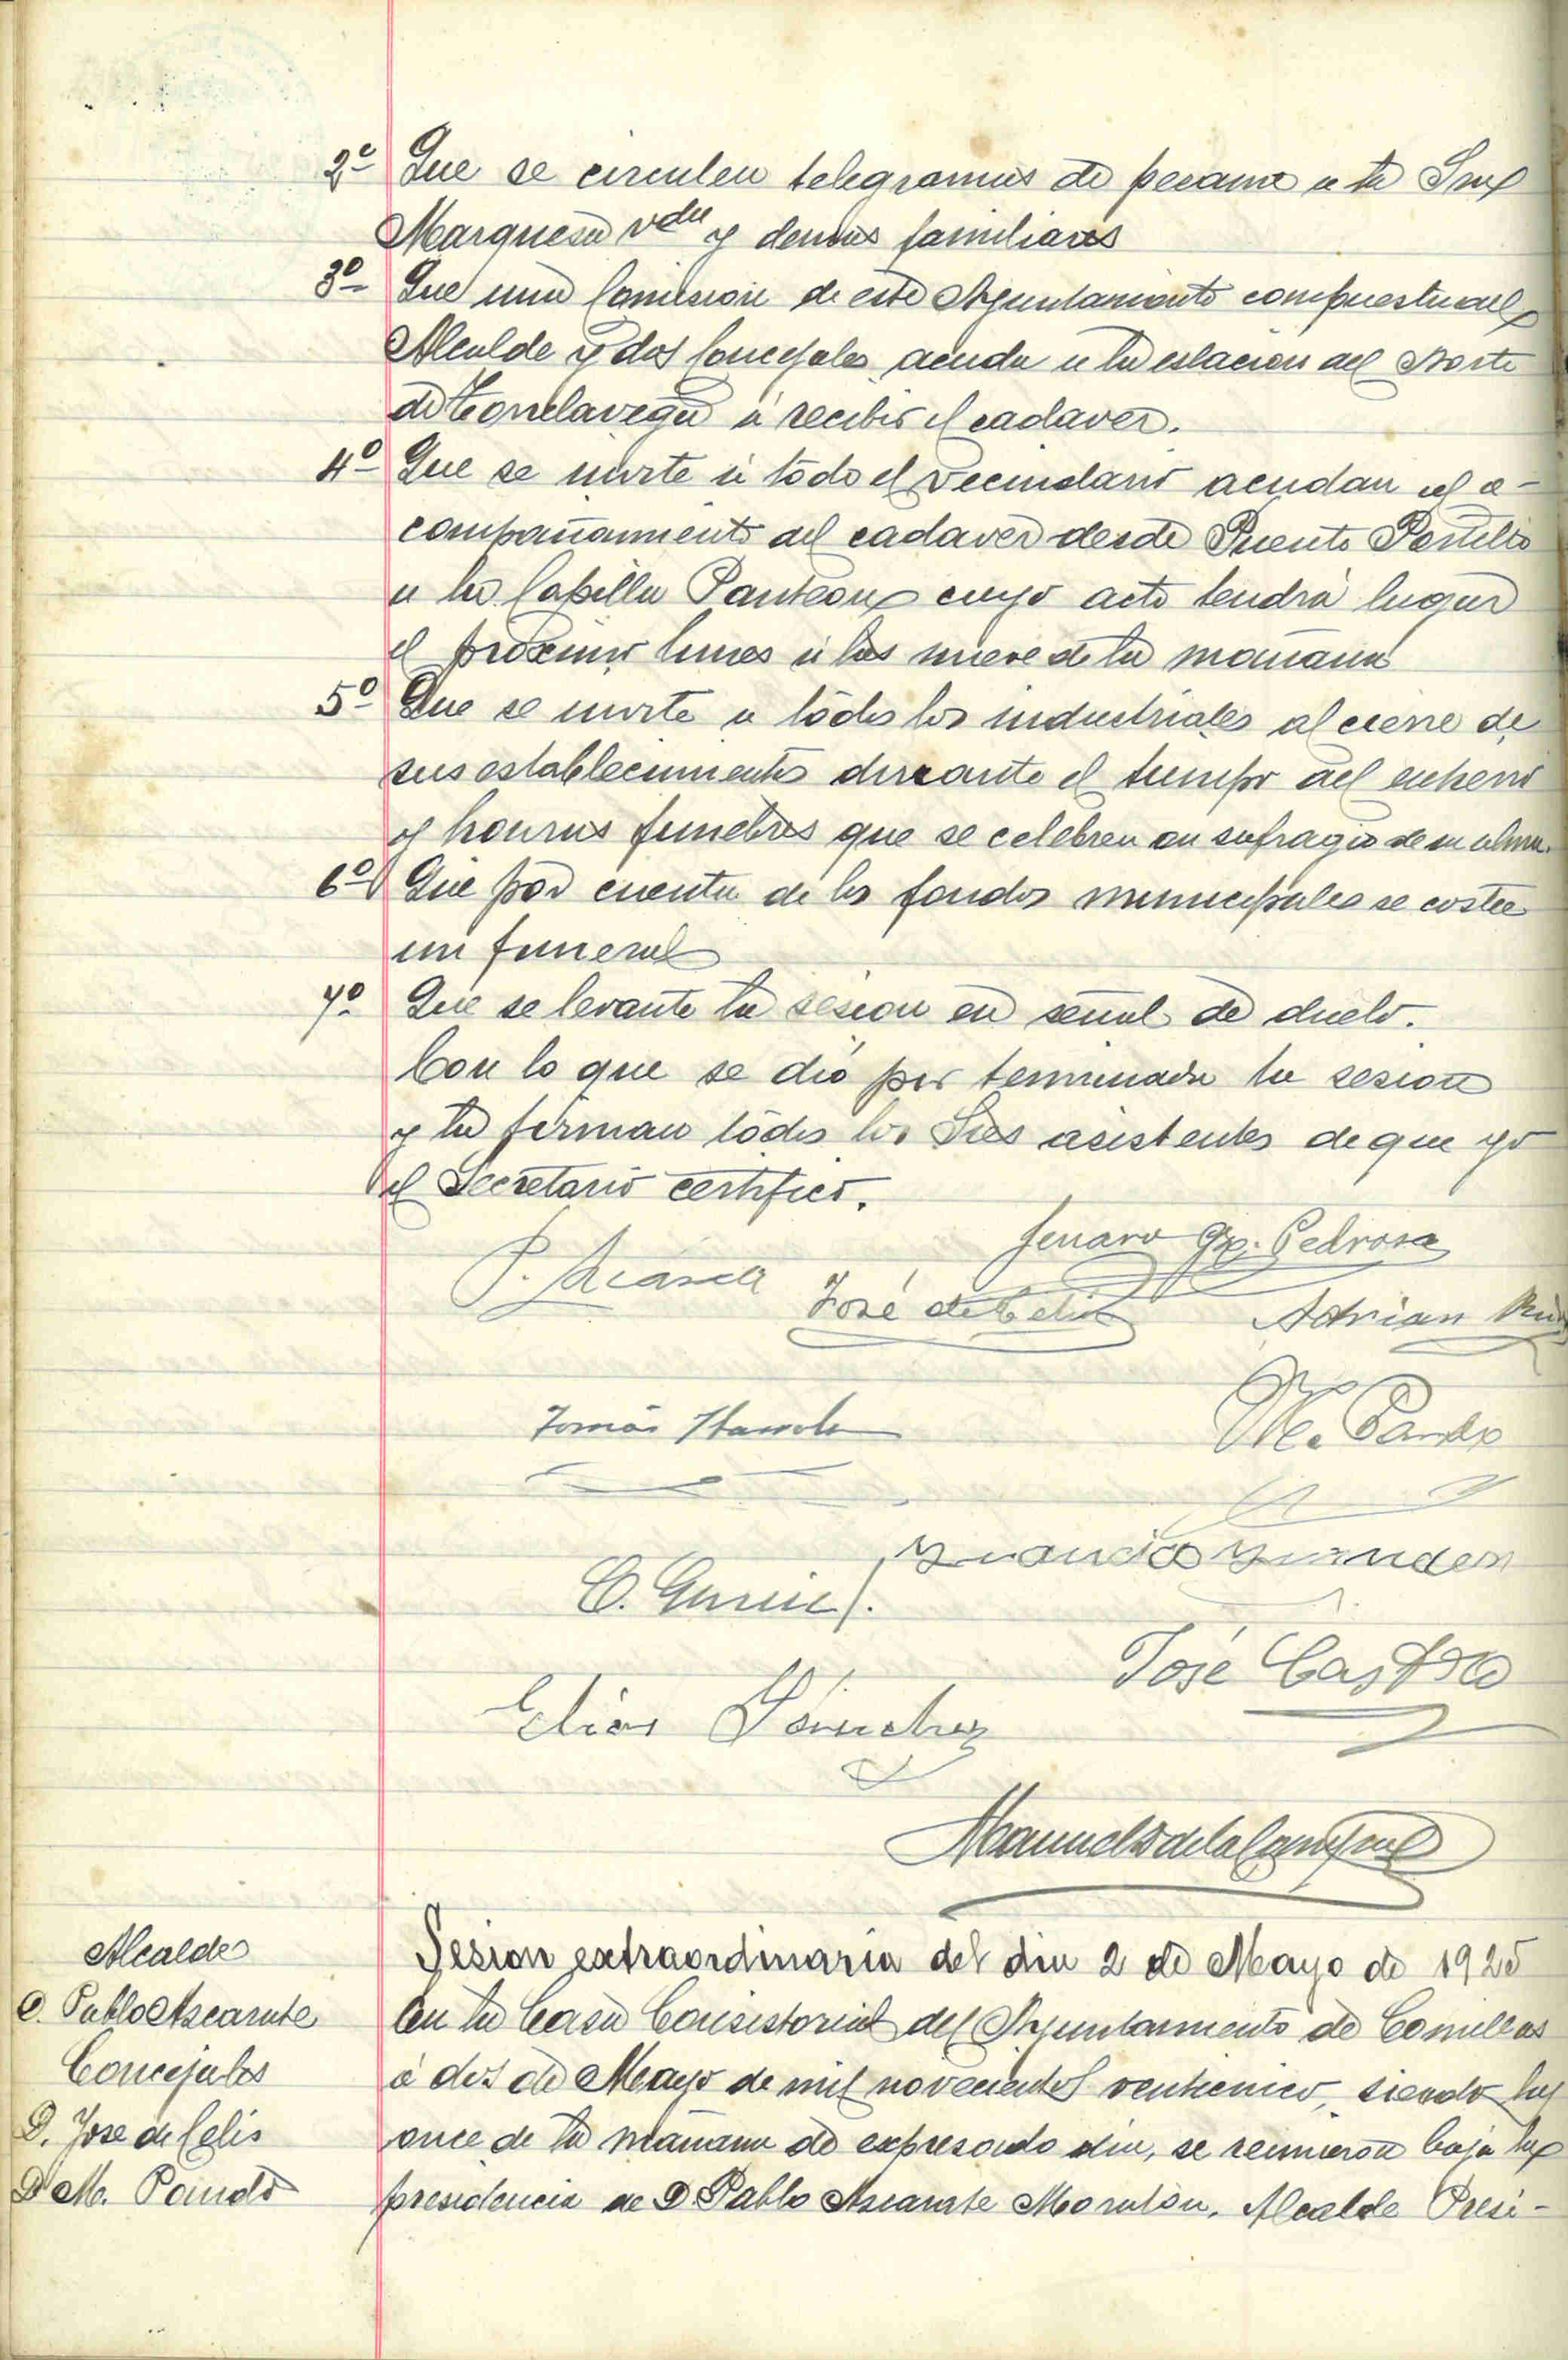 2º Que se circulen telegramas de pesame a la Sra
Marquesa vda y demas familiares
3º Que una Comision de este Ayuntamiento compuesta del
Alcalde y dos Concejales acuda a la estacion del Norte
de Torrelavega á recibir el cadaver.
4º Que se invite á todo el vecindario acudan al a-
compañamiento del cadaver desde Puente Portillo
a la Capilla Panteon cuyo acto tendrá lugar
el proximo lunes á las nueve de la mañana
5º Que se invite a todos los industriales al cierre de
sus establecimientos durante el tiempo del entierro
y honras funebres que se celebren en sufragio de su alma.
6º Que por cuenta de los fondos municipales se costee
un funeral
7º Que se levante la sesion en señal de duelo.
Con lo que se dió por terminada la sesion
y la firman todos los Sres asistentes de que yo
el Secretario certifico.
Genaro Gz. Pedrosa
José de Celis
Adrian
Tomás
M. Pando
José Castro
Elias Sánchez
Alcalde
D. Pablo Ascarate
Concejales
D. Jose de Celis
D M. Pando
Sesion extraordinaria del dia 2 de Mayo de 1925
En la Casa Consistorial del Ayuntamiento de Comillas
á dos de Mayo de mil novecientos venticinco, siendo las
once de la mañana de expresado dia, se reunieron bajo la
presidencia de D Pablo Ascarate Moralón, Alcalde Presi-